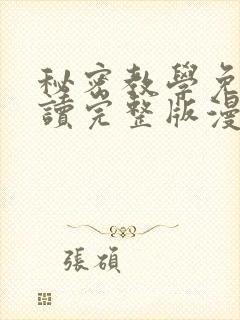 秘密教學免
讀完整版漫
張碩